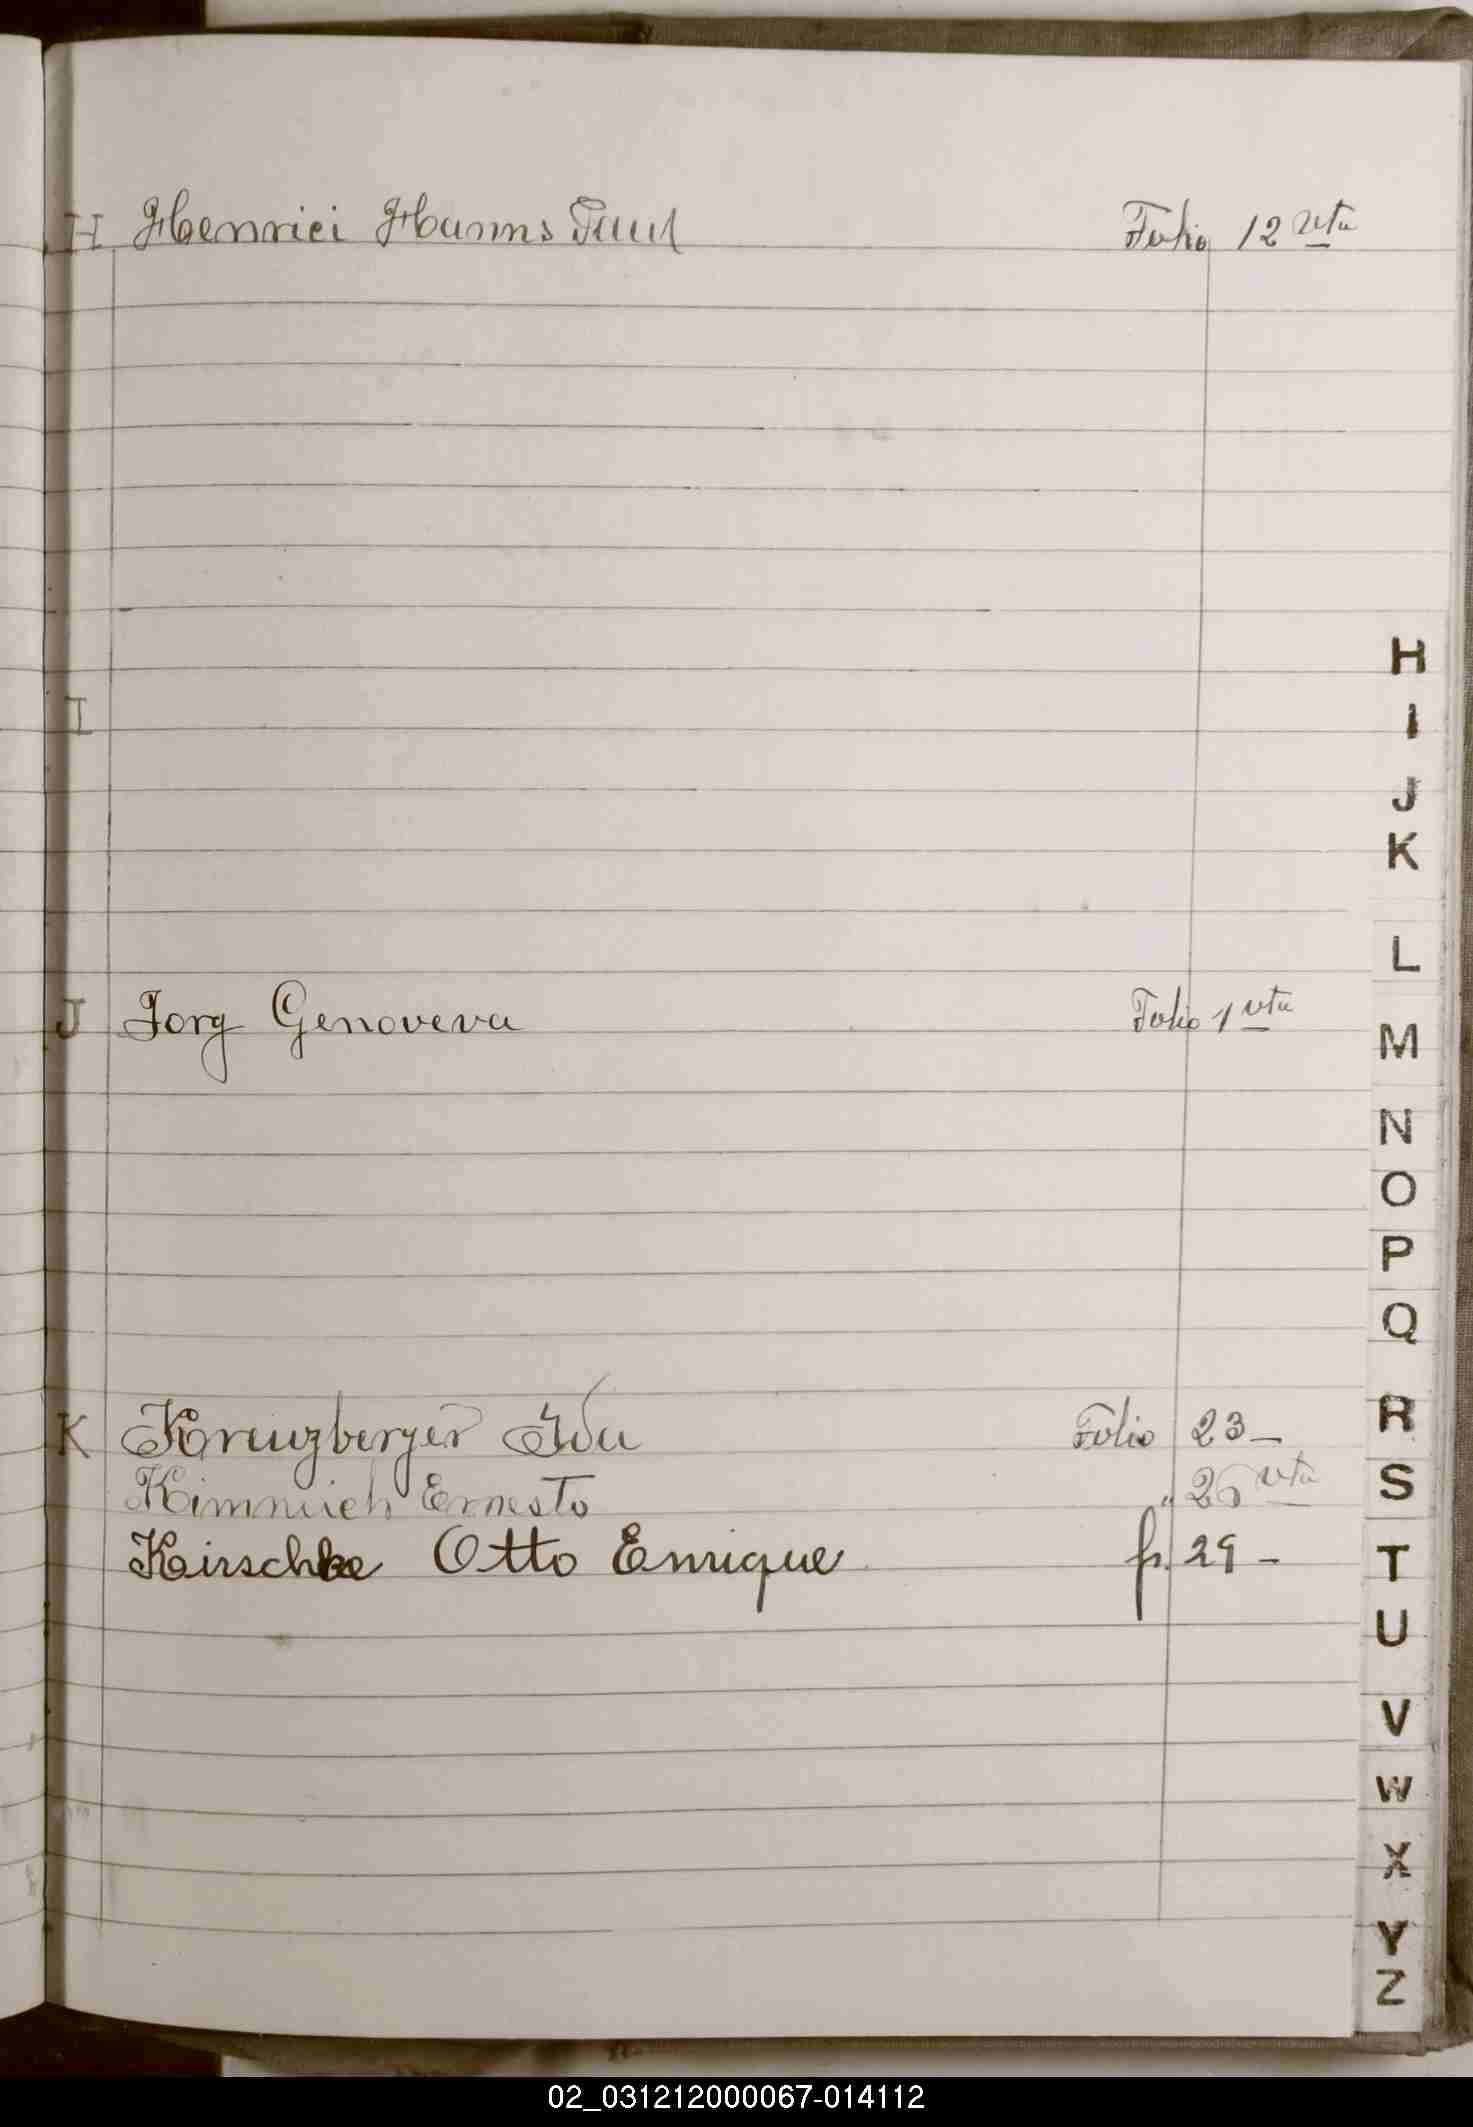 H Henrici Hanns Paul Folio 12 vta
I
J Jorg Genoveva Folio 1 vta
K Kreuzberger Ida Folio 23-
Kimmich Ernesto " 26 vta
Kirschke Otto Enrique fs. 29-
H
I
J
K
L
M
N
O
P
Q
R
S
T
U
V
W
X
Y
Z
02_031212000067-014112